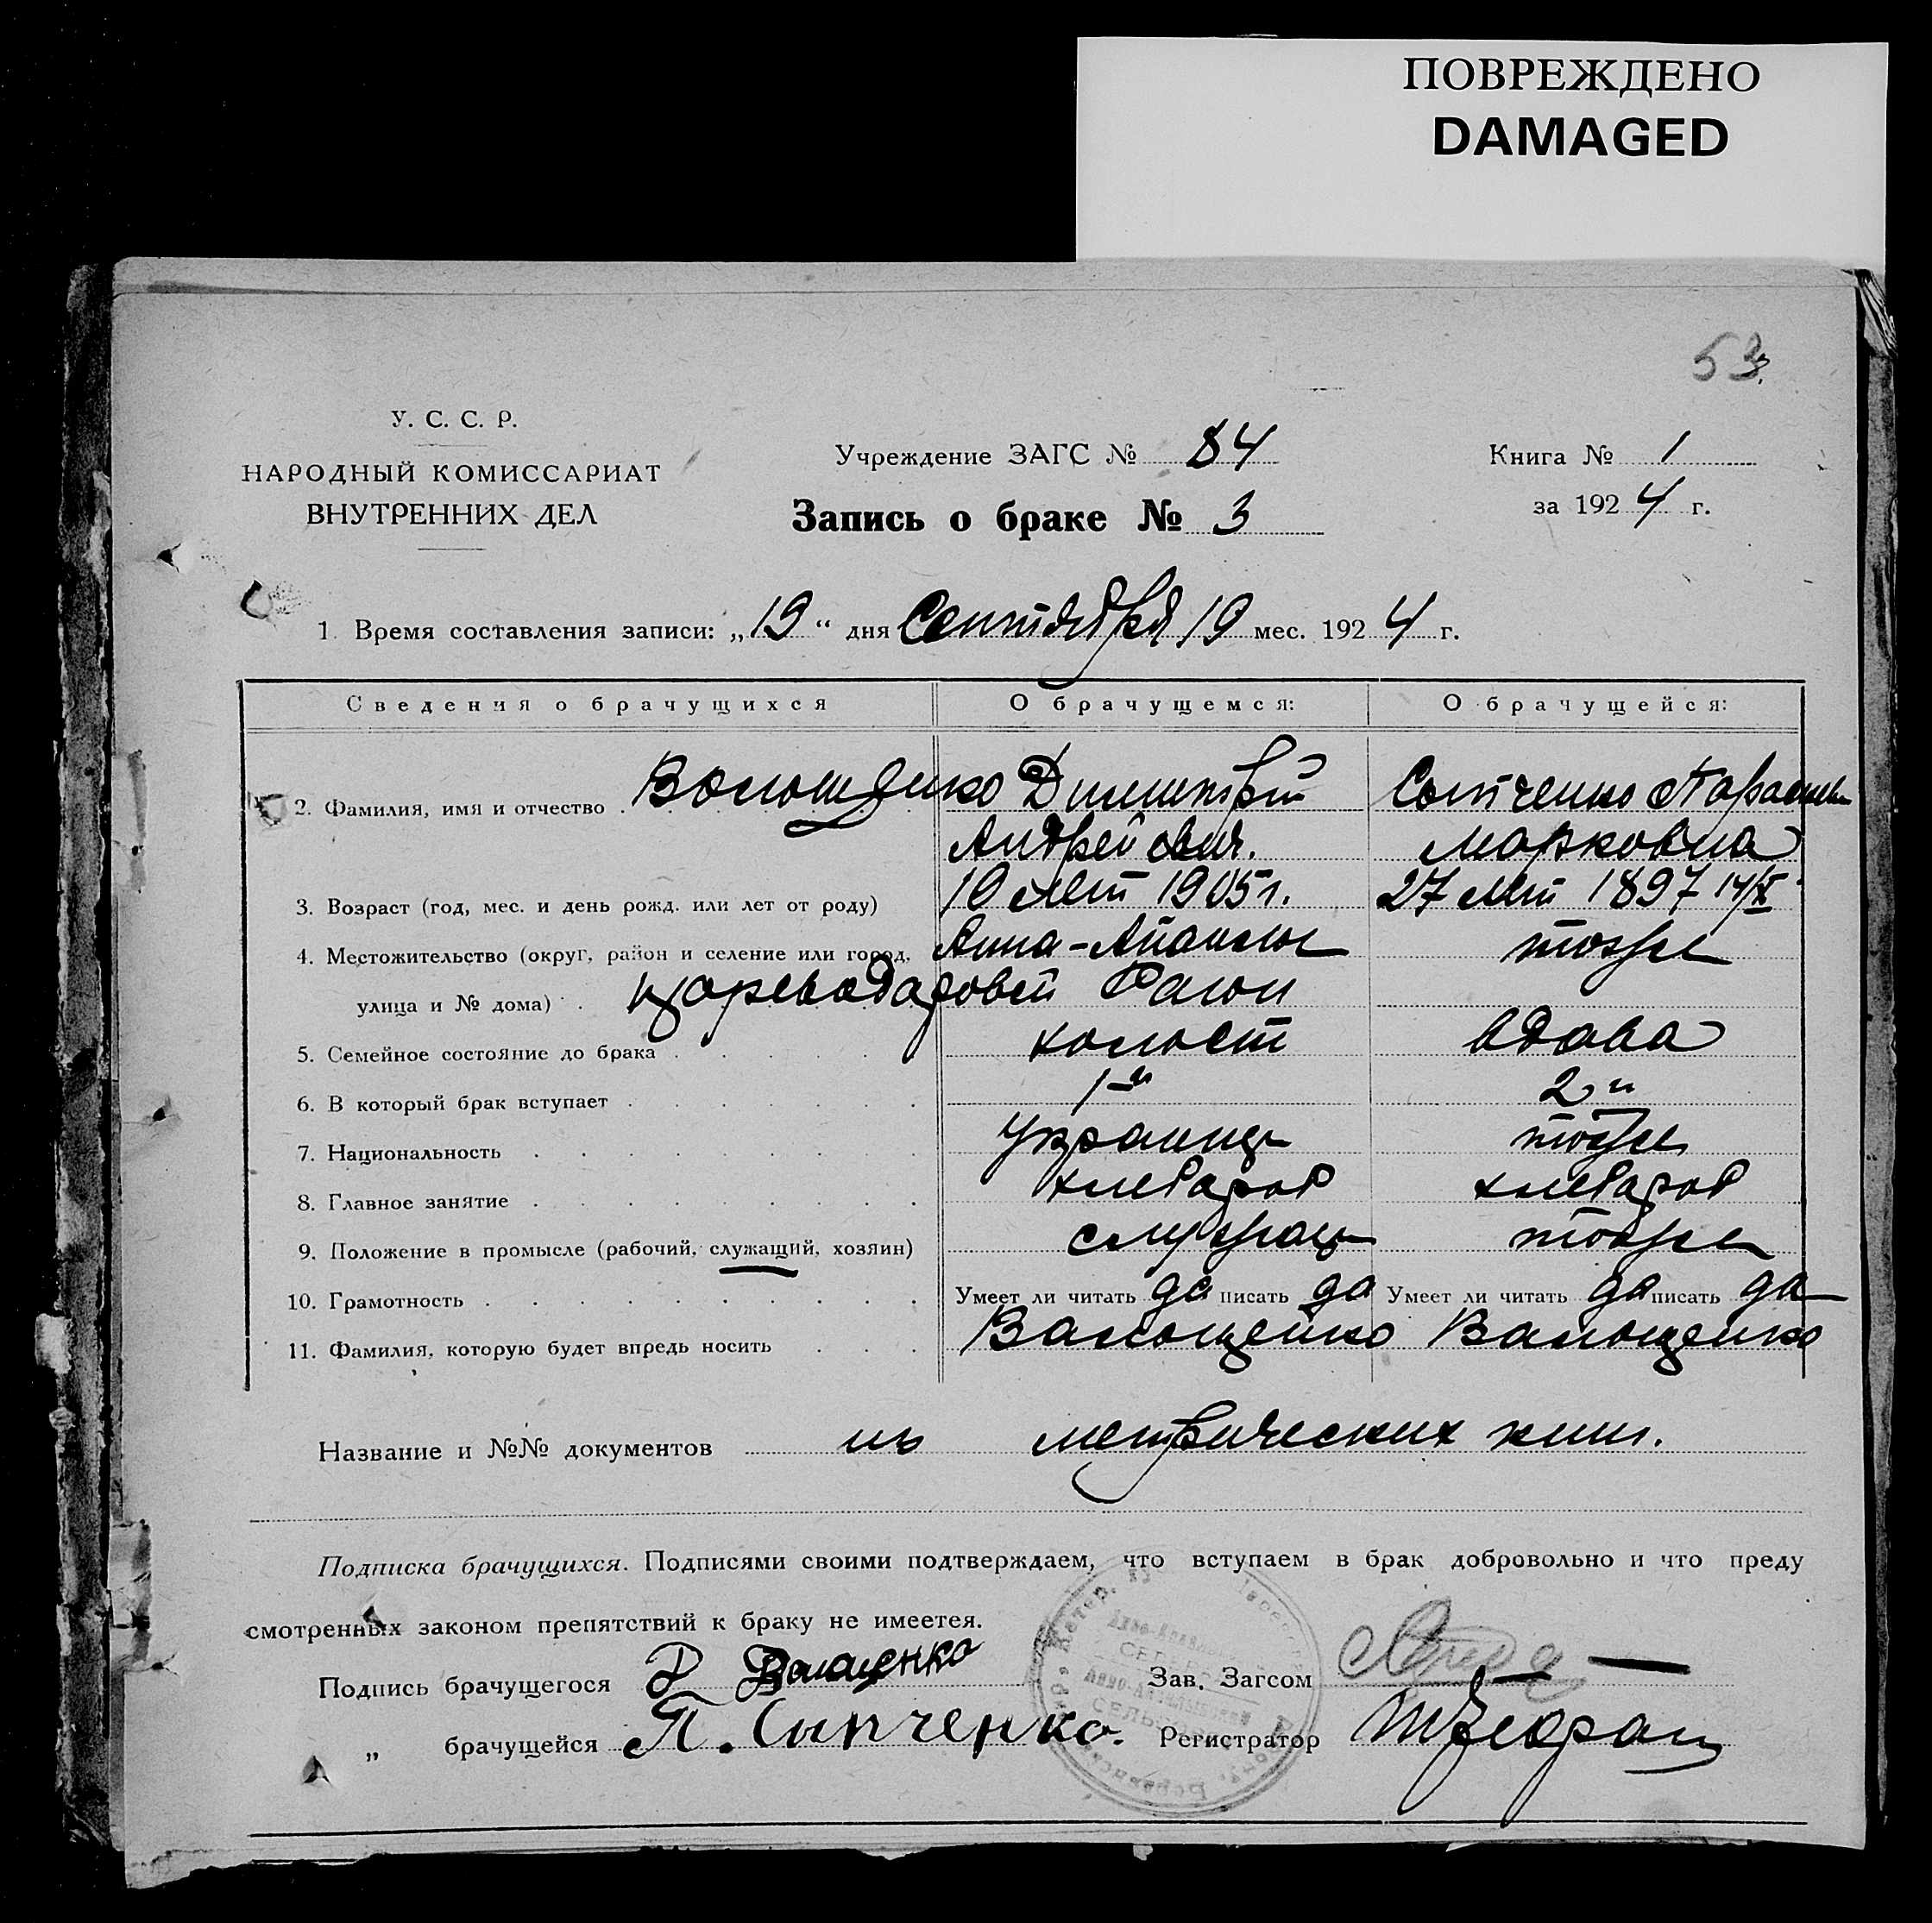 ПОВРЕЖДЕНО
DAMAGED
53.
У. С. С. Р.
НАРОДНЫЙ КОМИССАРИАТ
ВНУТРЕННИХ ДЕЛ
Учреждение ЗАГС № 84
Книга № 1
Запись о браке № 3
за 1924 г.
1. Время составления записи: „19“ дня Сентября 19 мес. 1924 г.
Сведения о брачущихся О брачущемся: О брачущейся:
2. Фамилия, имя и отчество Волощенко Димитрий Сытченко Параскева
Андрейевич. Марковна
3. Возраст (год, мес. и день рожд. или лет от роду) 19 лет 1905 г. 27 лет 1897 14/X
4. Местожительство (округ, район и селение или город, Анно- тоже
улица и № дома) Царевадаровский Раион
5. Семейное состояние до брака холост вдова
6. В который брак вступает 1-й 2й
7. Национальность Украинец тоже
8. Главное занятие хлебароб хлебароб
9. Положение в промысле (рабочий, служащий, хозяин) служащ тоже
10. Грамотность Умеет ли читать да писать да Умеет ли читать да писать да
11. Фамилия, которую будет впредь носить Валощенко Валощенко
Название и №№ документов из метрических книг.
Подписка брачущихся. Подписями своими подтверждаем, что вступаем в брак добровольно и что преду
смотренных законом препятствий к браку не имеетея.
Подпись брачущегося Валащенко Зав. Загсом
„ брачущейся П. Сытченко. Регистратор